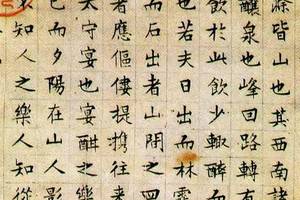 滁皆山也其西南諸
釀泉也峰回路轉有
飲於此飲少輒醉而
也若夫日出而林霏
而石出者山間之四
者應傴僂提携往來
太守宴也宴酣之樂
已而夕陽在山人影
知人之樂人知從